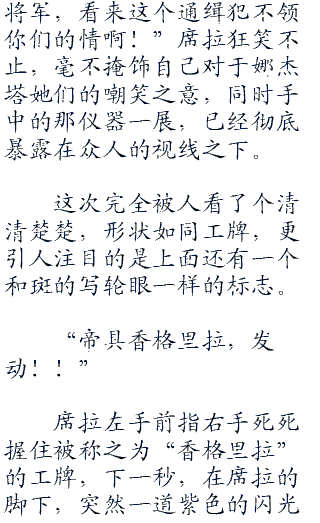 将军，看来这个通缉犯不领
你们的情啊！”席拉狂笑不
止，毫不掩饰自己对于娜杰
塔她们的嘲笑之意，同时手
中的那仪器一展，已经彻底
暴露在众人的视线之下。
这次完全被人看了个清
清楚楚，形状如同工牌，更
引人注目的是上面还有一个
和斑的写轮眼一样的标志。
“帝具香格里拉，发
动！！”
席拉左手前指右手死死
握住被称之为“香格里拉”
的工牌，下一秒，在席拉的
脚下，突然一道紫色的闪光